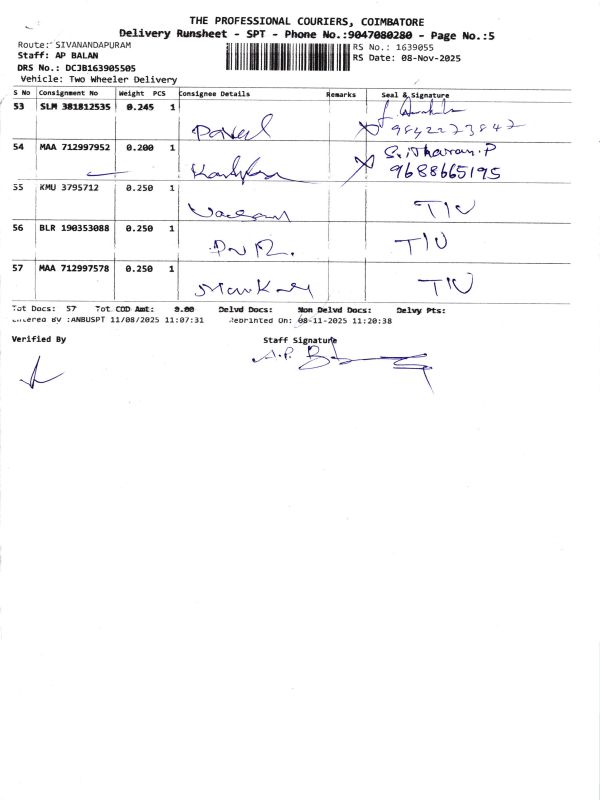 THE PROFESSIONAL COURIERS, COIMBATORE
Delivery Runsheet - SPT - Phone No.:9047080280 - Page No.:5
Route: SIVANANDAPURAM
RS No.: 1639055
Staff: AP BALAN
RS Date: 08-Nov-2025
DRS No.: DCJB163905505
Vehicle: Two Wheeler Delivery
S No Consignment No Weight PCS Consignee Details Remarks Seal & Signature
53 SLM 381812535 0.245 1
9842223842
54 MAA 712997952 0.200 1 Sritharan.P
9688665195
55 KMU 3795712 0.250 1
56 BLR 190353088 0.250 1
57 MAA 712997578 0.250 1
Tot Docs: 57 Tot COD Amt: 0.00 Delvd Docs: Non Delvd Docs: Delvy Pts:
Entered BY :ANBUSPT 11/08/2025 11:07:31 Reprinted On: 08-11-2025 11:20:38
Verified By Staff Signature